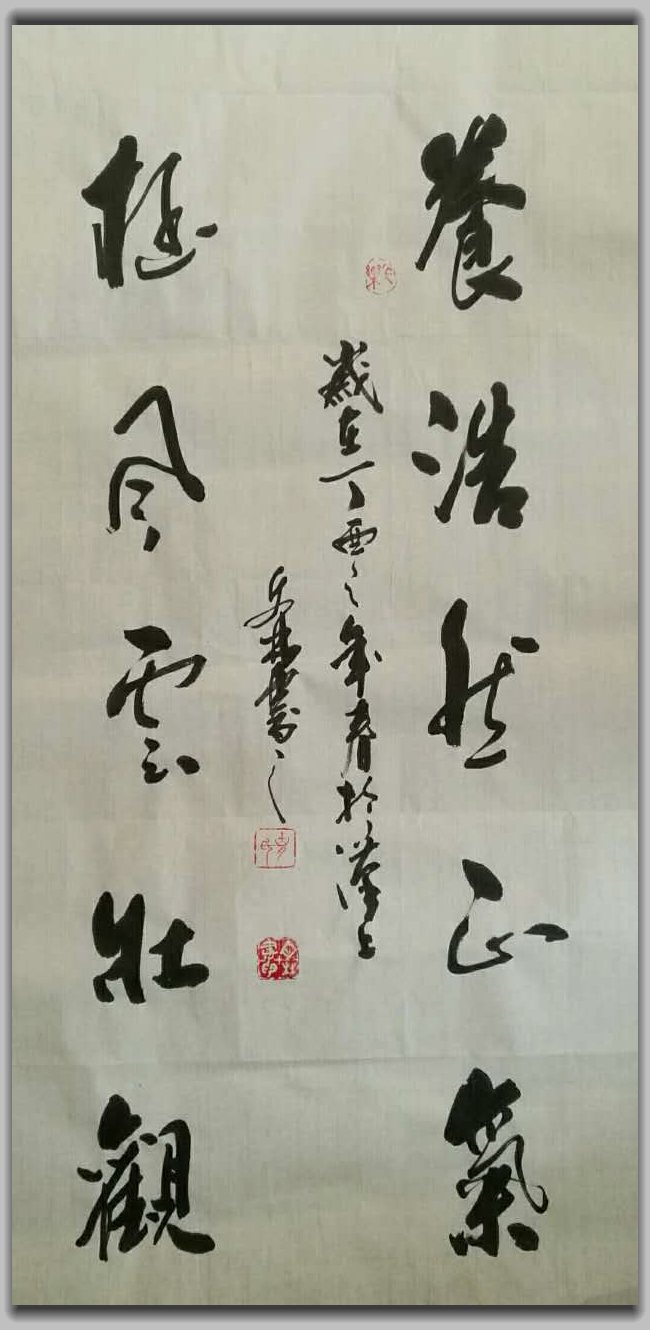 養浩然正氣
極風雲壯觀
歲在丁酉之年春於漢上
林書之